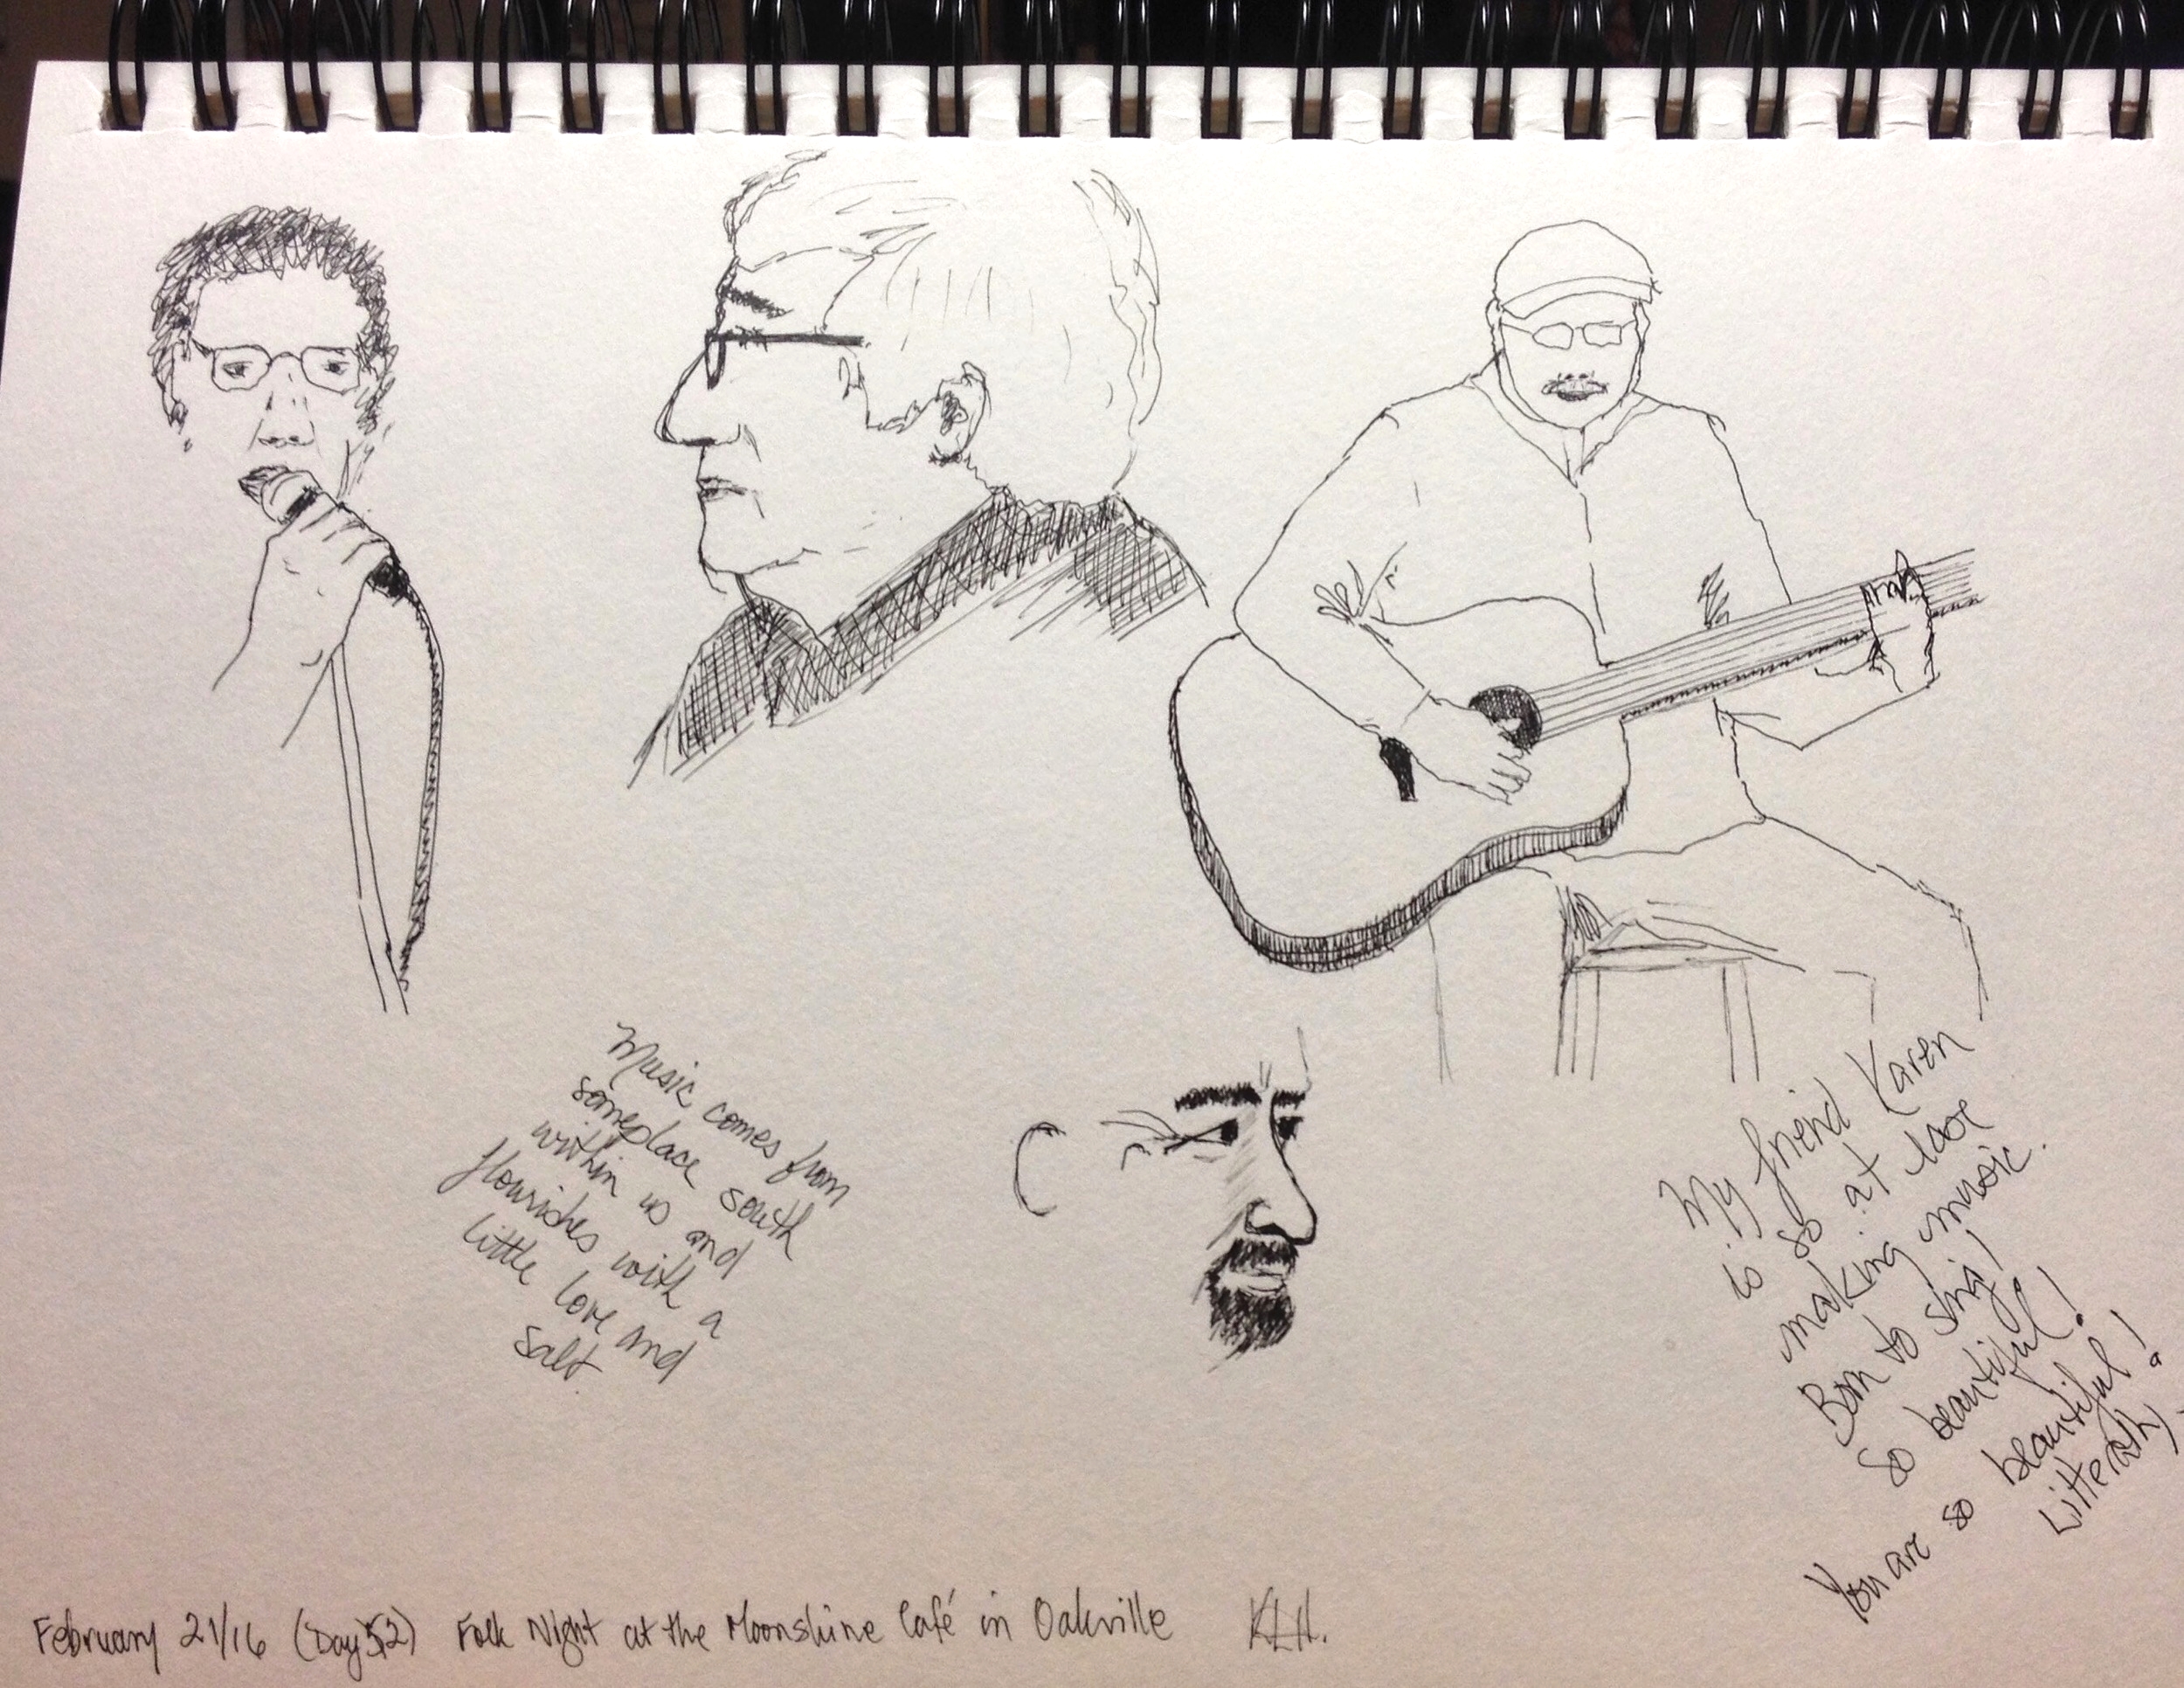 Music comes from
someplace south
within us and
flourishes with a
little love and
salt.
My friend Karen
is so at love
making music.
Born to sing!
So beautiful!
You are so beautiful!
Litterally
February 21/16 (Day 52) Folk Night at the Moonshine Café in Oakville KLH.